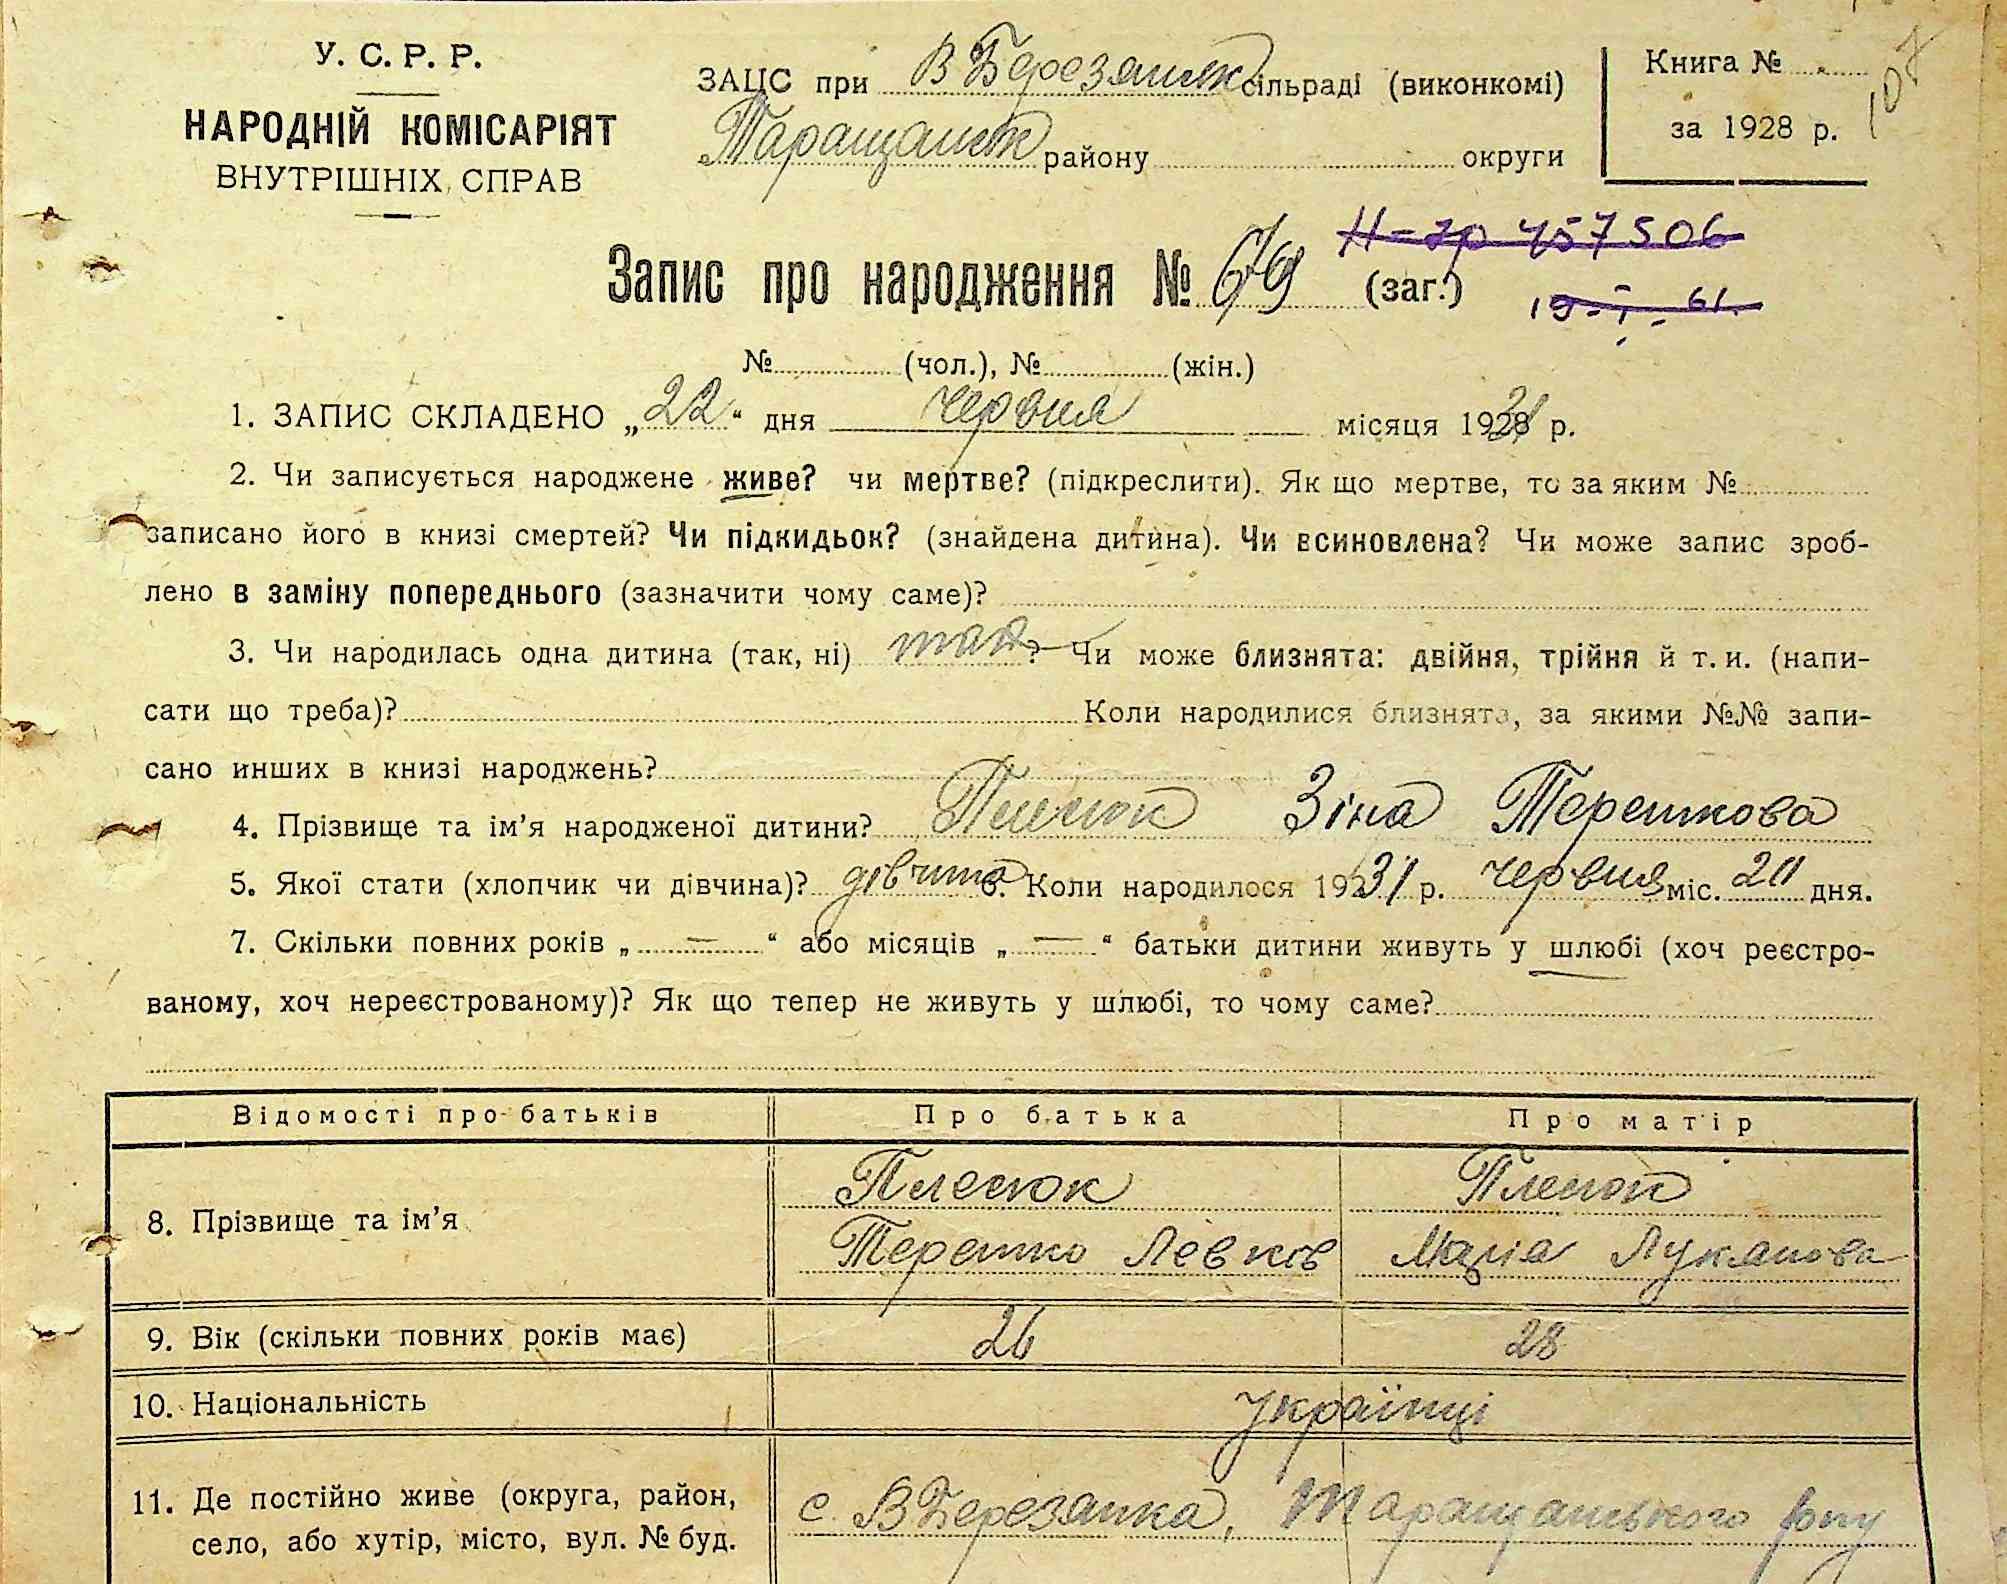 У. С. Р. Р.
НАРОДНІЙ КОМІСАРІЯТ
ВНУТРІШНІХ СПРАВ
ЗАЦС при В Березянск сільраді (виконкомі)
Таращанск району округи
Книга №
за 1928 р.
107
Запис про народження № 679 (заг.)
II-зр 457506
19-I-61.
№ (чол.), № (жін.)
1. ЗАПИС СКЛАДЕНО „22“ дня червня місяця 1931 р.
2. Чи записується народжене живе? чи мертве? (підкреслити). Як що мертве, то за яким №
записано його в книзі смертей? Чи підкидьок? (знайдена дитина). Чи всиновлена? Чи може запис зроб-
лено в заміну попереднього (зазначити чому саме)?
3. Чи народилась одна дитина (так, ні) так? Чи може близнята: двійня, трійня й т. и. (напи-
сати що треба)? Коли народилися близнята, за якими №№ запи-
сано инших в книзі народжень?
4. Прізвище та ім’я народженої дитини? Плесюк Зіна Терешкова
5. Якої стати (хлопчик чи дівчина)? дівчина 6. Коли народилося 1931 р. червня міс. 20 дня.
7. Скільки повних років „ — “ або місяців „ — “ батьки дитини живуть у шлюбі (хоч реєстро-
ваному, хоч нереєстрованому)? Як що тепер не живуть у шлюбі, то чому саме?
Відомості про батьків Про батька Про матір
8. Прізвище та ім’я
Плесюк Плесюк
Терешко Левків Марія Луканова
9. Вік (скільки повних років має) 26 28
10. Національність українці
11. Де постійно живе (округа, район,
село, або хутір, місто, вул. № буд.
с. В Березанка, Таращанського рону